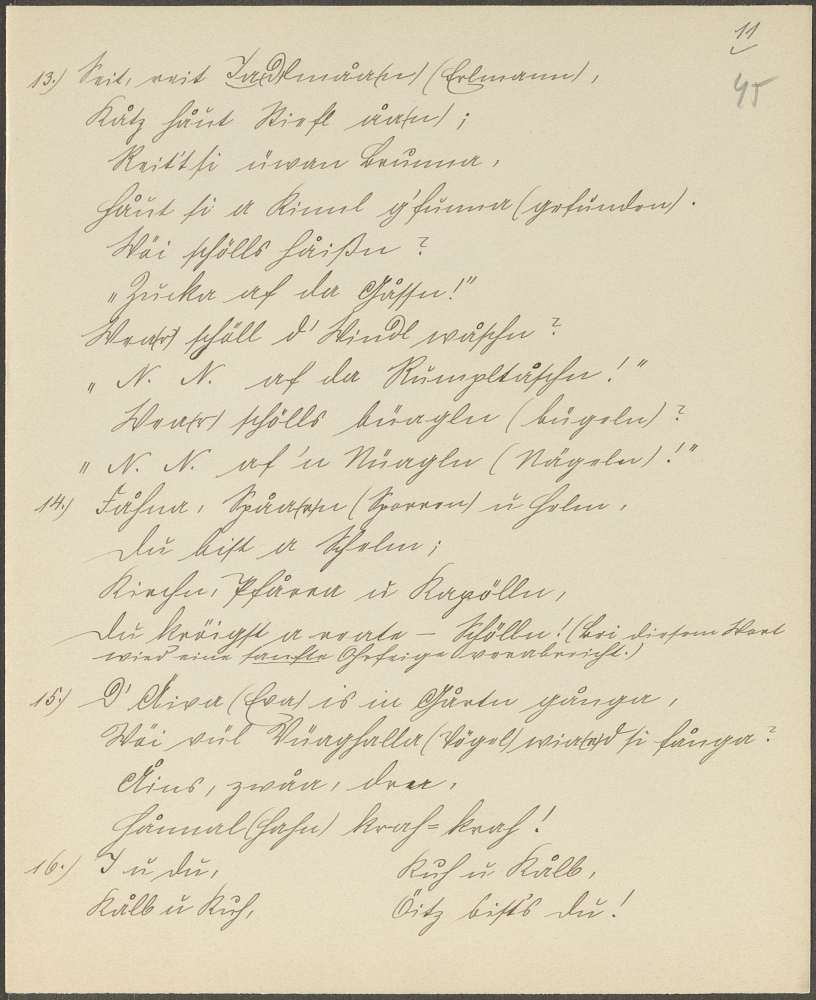 11
45
13.) Reit, reit Iadlmåa(n) (Erlmann),
Kåtz håut Stiefl åa(n);
Reit't si üwan Brunna,
Håut si a Kinnl g'funna (gefunden).
Wöi schölls håißn?
"Zucka af da Gåssn!"
Wea(r) schöll d' Windl wåschn?
"N. N. af da Rumpltåschn!"
Wea(r) schölls büagln (bügeln)?
"N. N. af 'n Nüagln (Nägeln)!"
14.) Fåhna, Spåa(r)n (Sporren) u Helm,
Du bist a Schelm;
Kirchn, Pfårra u Kapölln,
Du kröigst a roate – Schölln! (Bei diesem Wort
wird eine sanfte Ohrfeige verabreicht.)
15.) D' Äiva (Eva) is in Gårtn gånga,
Wöi vül Vüaghalla (Vögel) wia(r)d si fånga?
Åins, zwåa, drei,
Hånnal (Hahn) krah-krah!
16.) I u du,
Kålb u Kuh,
Kuh u Kålb,
Öitz bist's du!